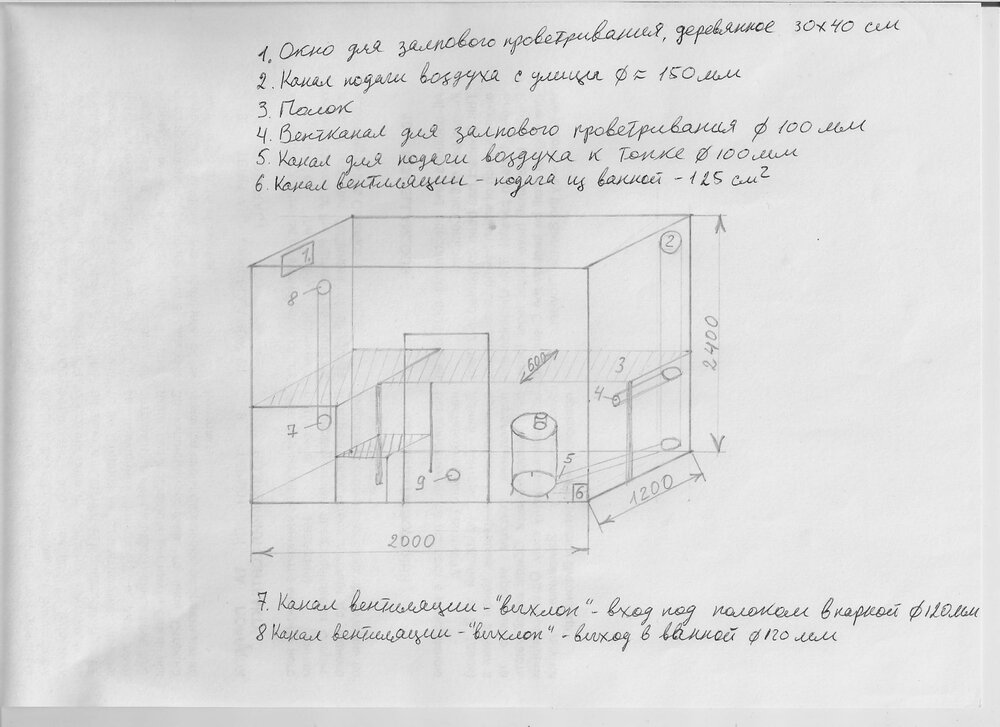 1. Окно для залпового проветривания, деревянное 30х40 см
2. Канал подачи воздуха с улицы ф = 150 мм
3. Полок
4. Вентканал для залпового проветривания ф 100 мм
5. Канал для подачи воздуха к топке ф 100 мм
6. Канал вентиляции - подача из ванной - 125 см²
1.
2
8
600
3
2400
4
7
5
9
6
1200
2000
7. Канал вентиляции - "выхлоп" - вход под полоком в паркой ф 120 мм
8 Канал вентиляции - "выхлоп" - выход в ванной ф 120 мм